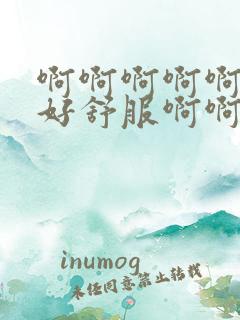 啊啊啊啊啊
好舒服啊啊
inumog
未经同意禁止转载